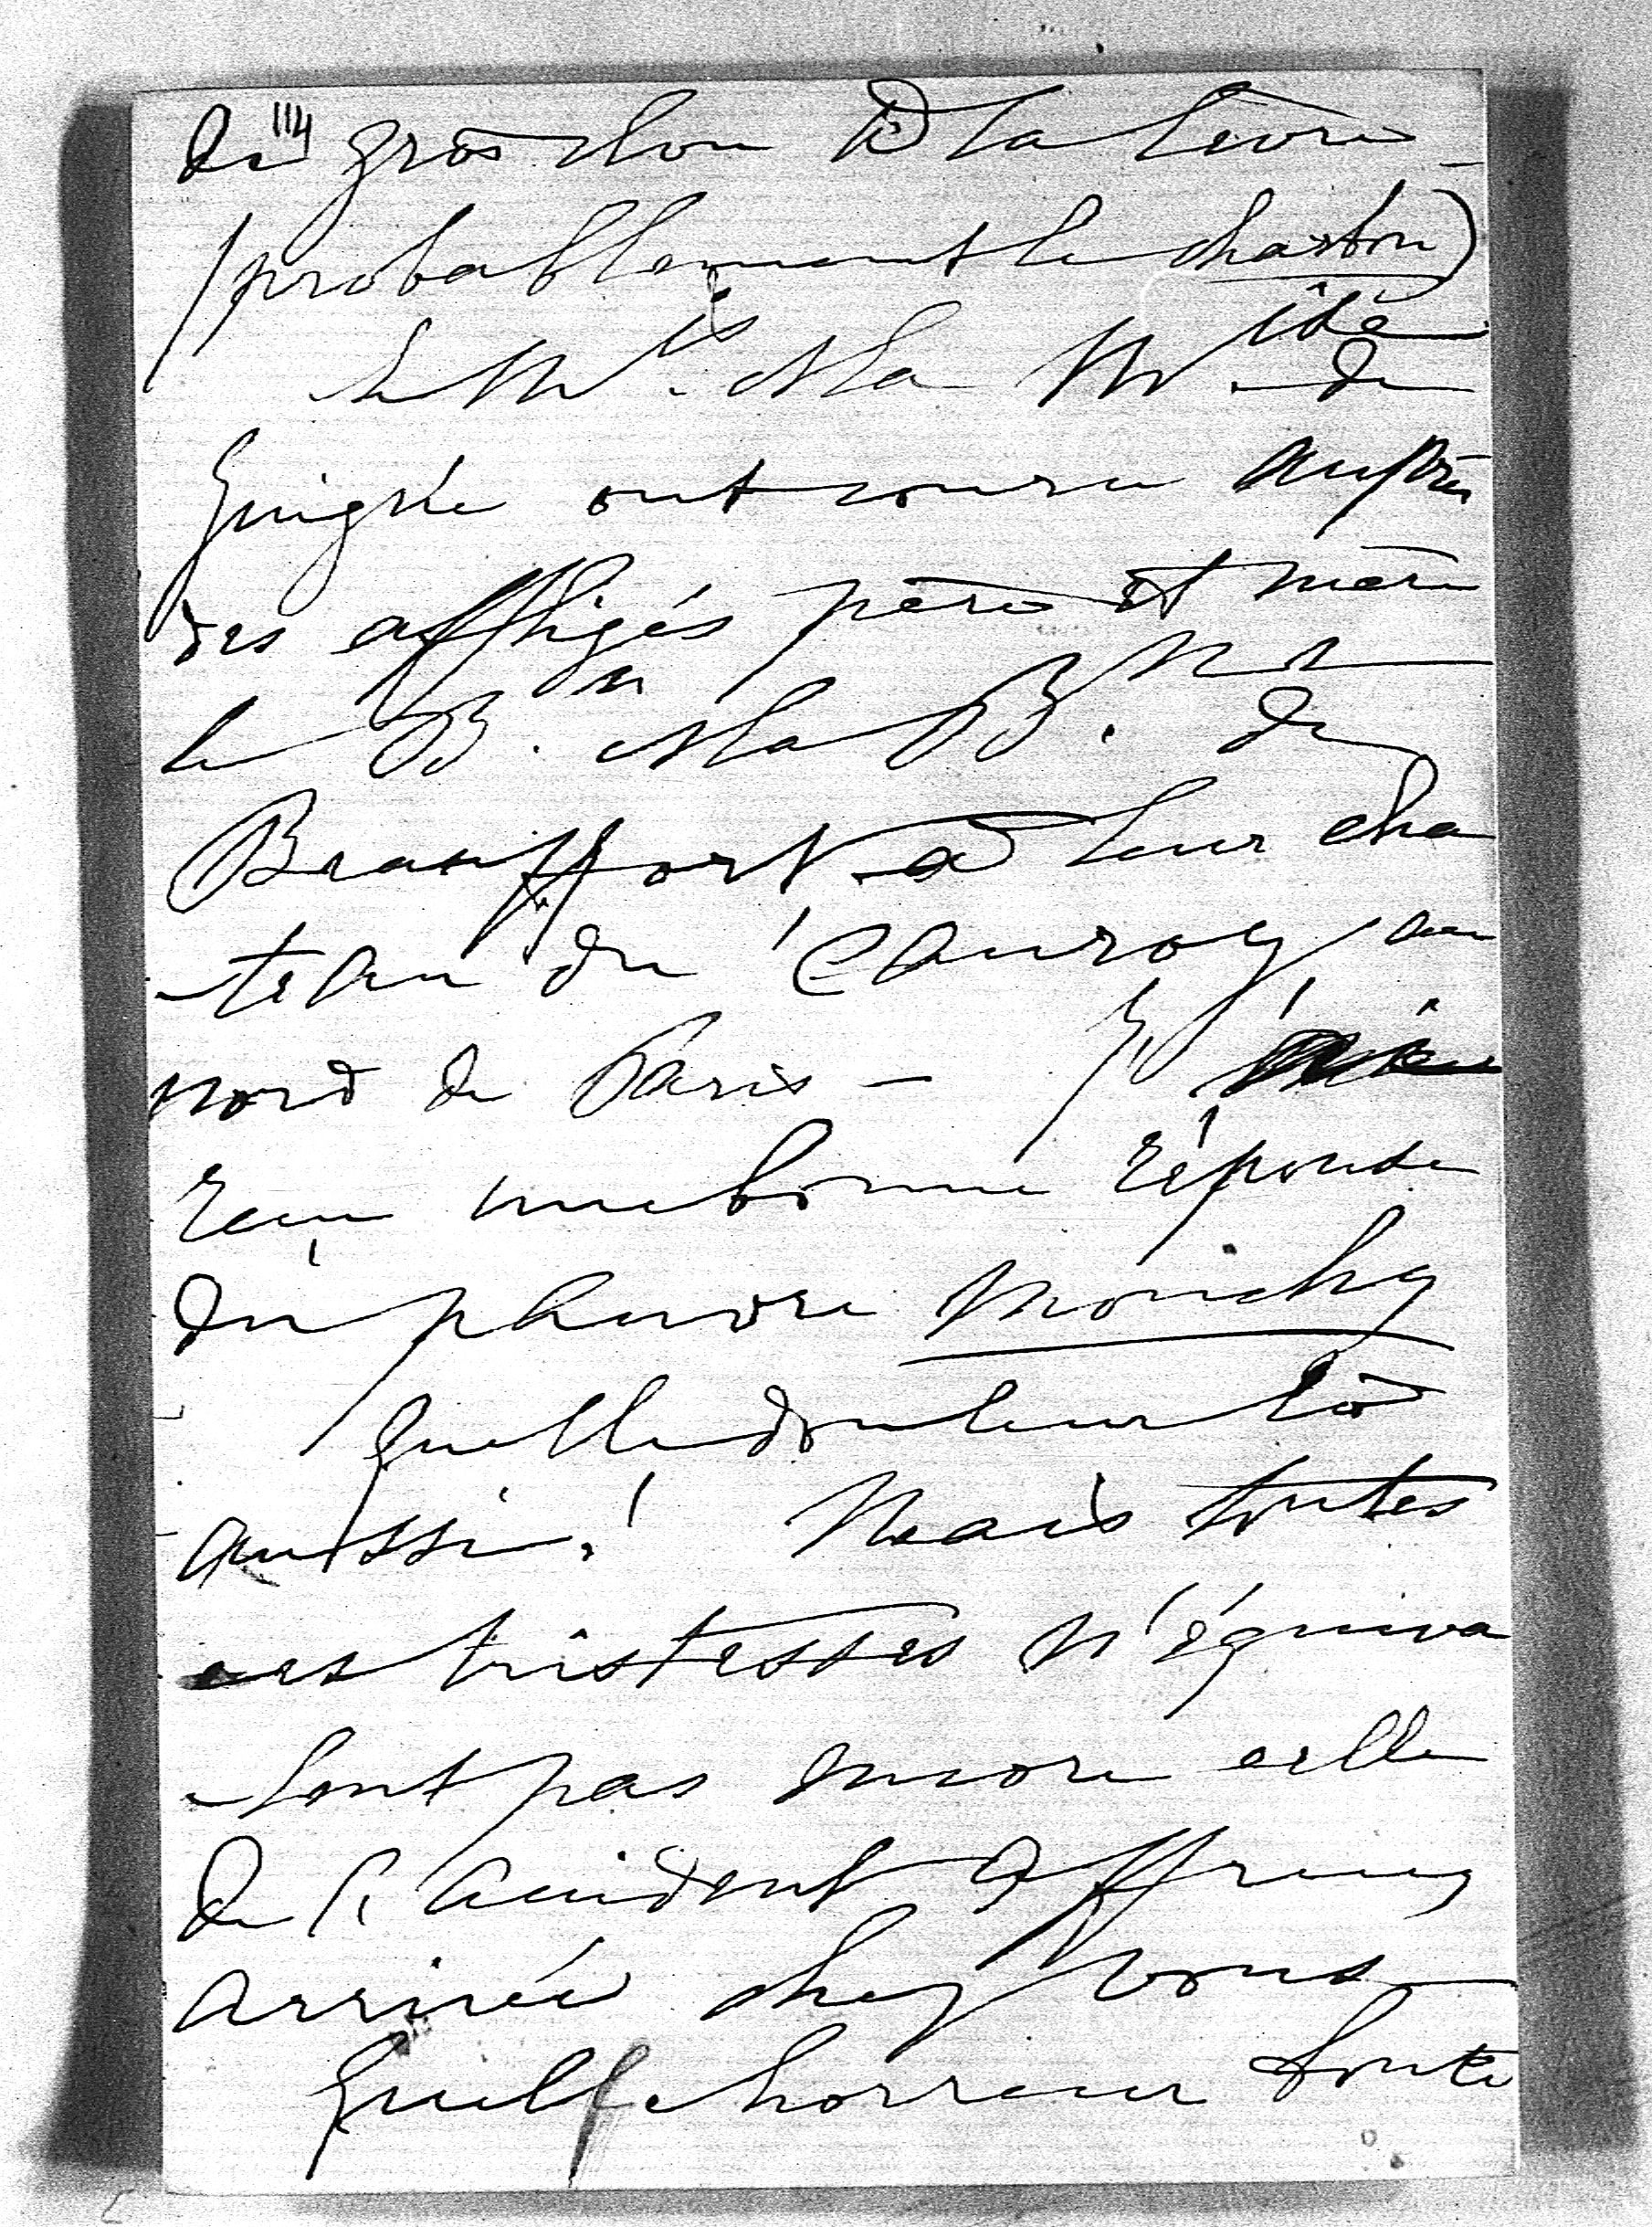 114
du gros clou à la lèvre -
(probablement le charbon)
le M.is et la M.ise de
Guigné ont couru auprès
des affligés père et mère
le B.on et la B.nne de
Beauffort à leur cha
-teau du Cauroy au
nord de Paris - J'ai
reçu une bonne réponse
du pauvre Mouchy
Quelle douleur là
aussi! Mais toutes
ces tristesses n'équiva
-lent pas encore celle
de l'accident affreux
arrivée chez vous
Quelle horreur toute